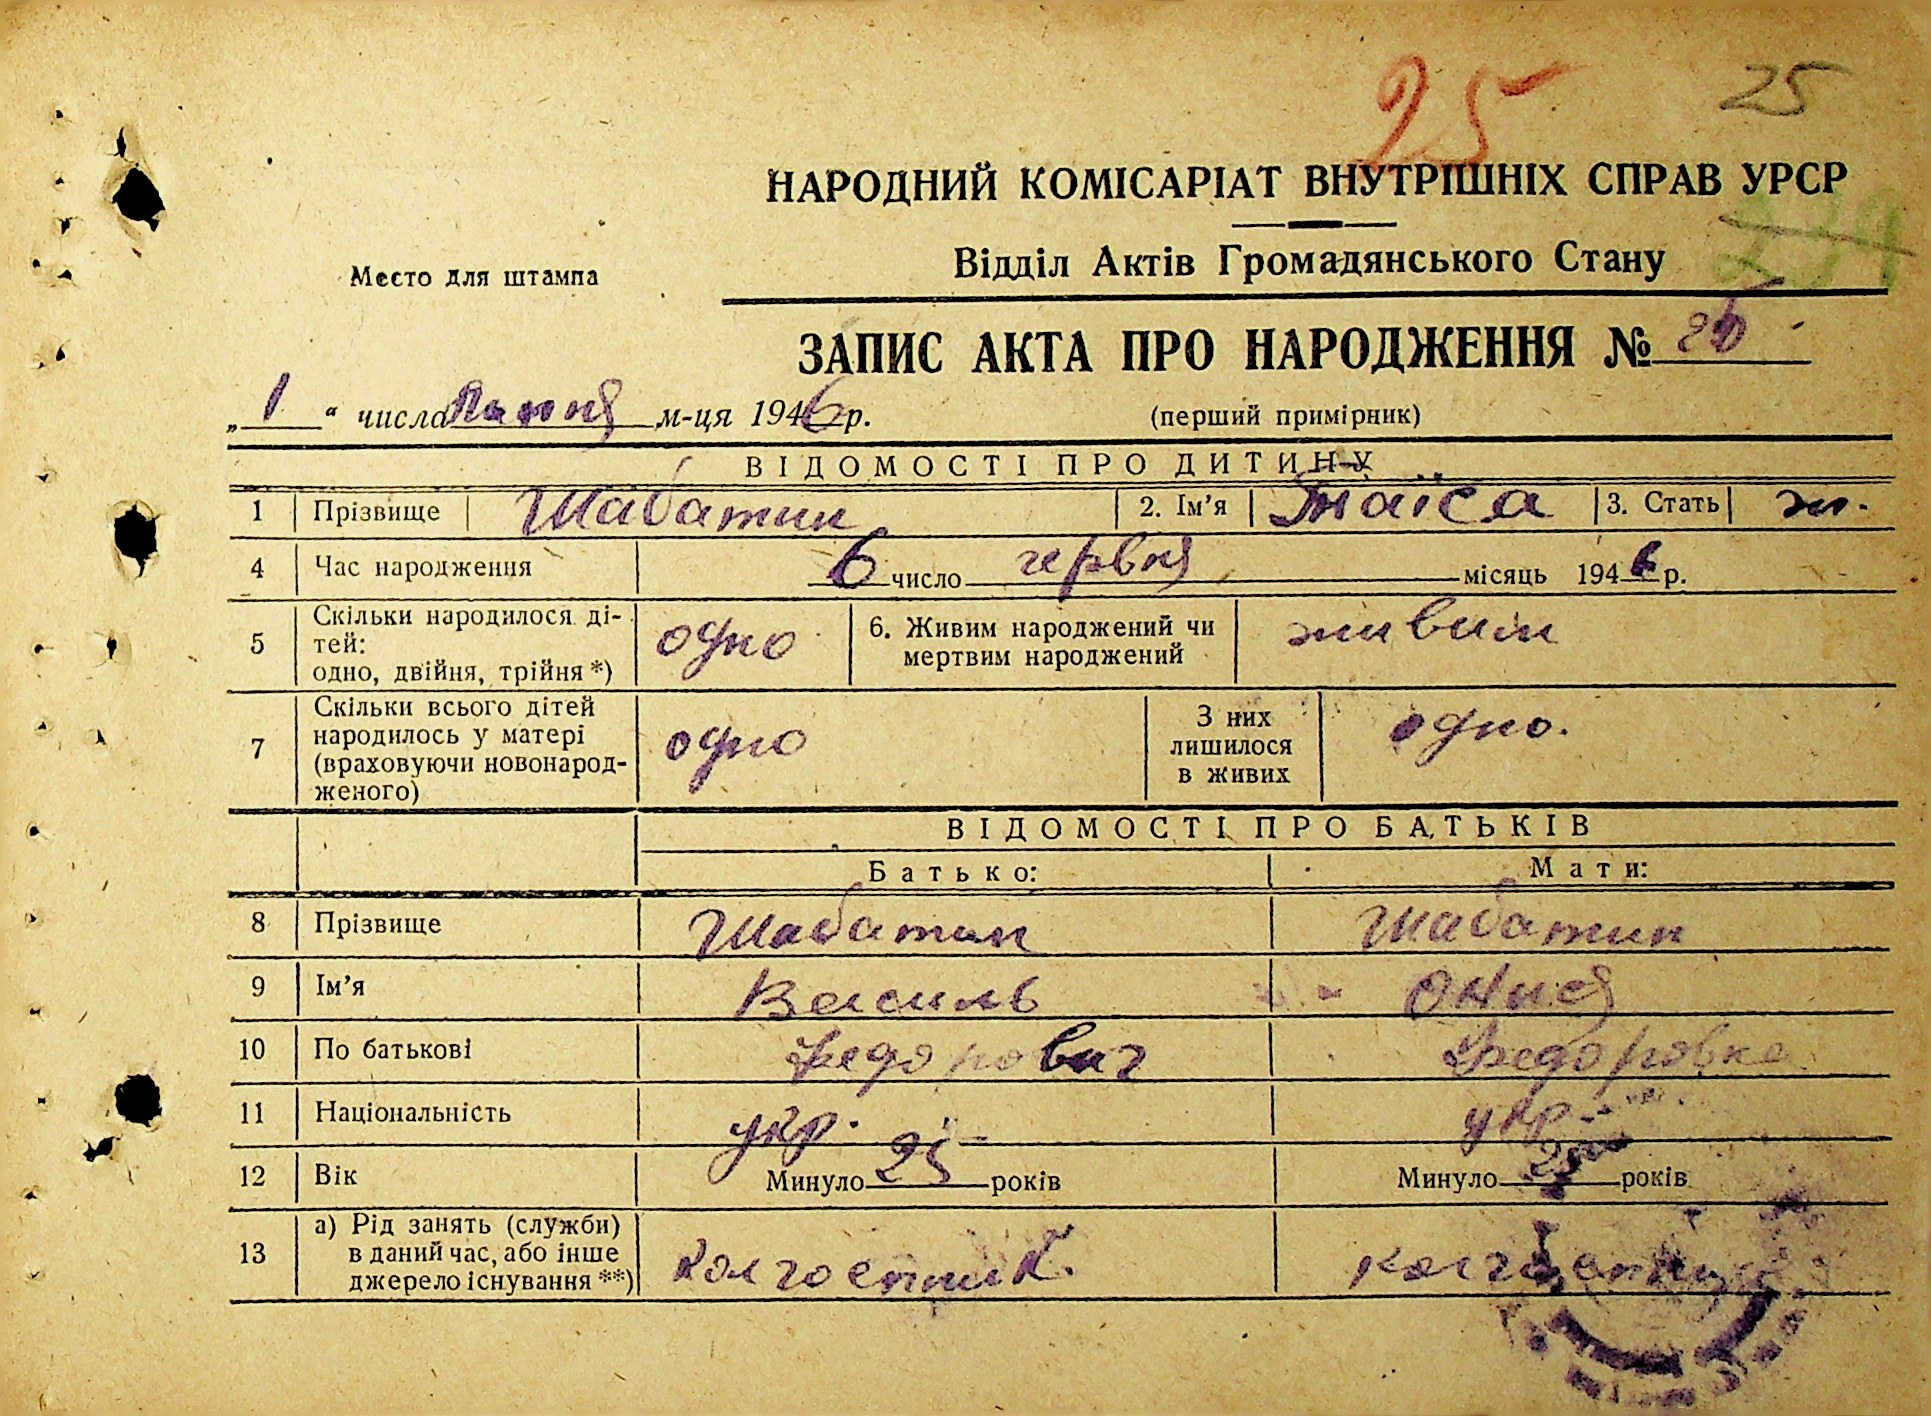 25 25
НАРОДНИЙ КОМІСАРІАТ ВНУТРІШНІХ СПРАВ УРСР
Відділ Актів Громадянського Стану
Место для штампа
ЗАПИС АКТА ПРО НАРОДЖЕННЯ № 25
„1“ числа Липня м-ця 1946 р. (перший примірник)
ВІДОМОСТІ ПРО ДИТИНУ
1 Прізвище Шабатин 2. Ім’я Таїса 3. Стать ж.
4 Час народження 6 число червня місяць 1946 р.
5 Скільки народилося ді-
тей:
одно, двійня, трійня *) одно 6. Живим народжений чи
мертвим народжений живим
7 Скільки всього дітей
народилось у матері
(враховуючи новонарод-
женого) одно З них
лишилося
в живих одно.
ВІДОМОСТІ ПРО БАТЬКІВ
Батько: Мати:
8 Прізвище Шабатин Шабатин
9 Ім’я Василь
10 По батькові Федорович Федоровна
11 Національність укр. укр.
12 Вік Минуло 25 років Минуло років
13 а) Рід занять (служби)
в даний час, або інше
джерело існування **) колгоспник.